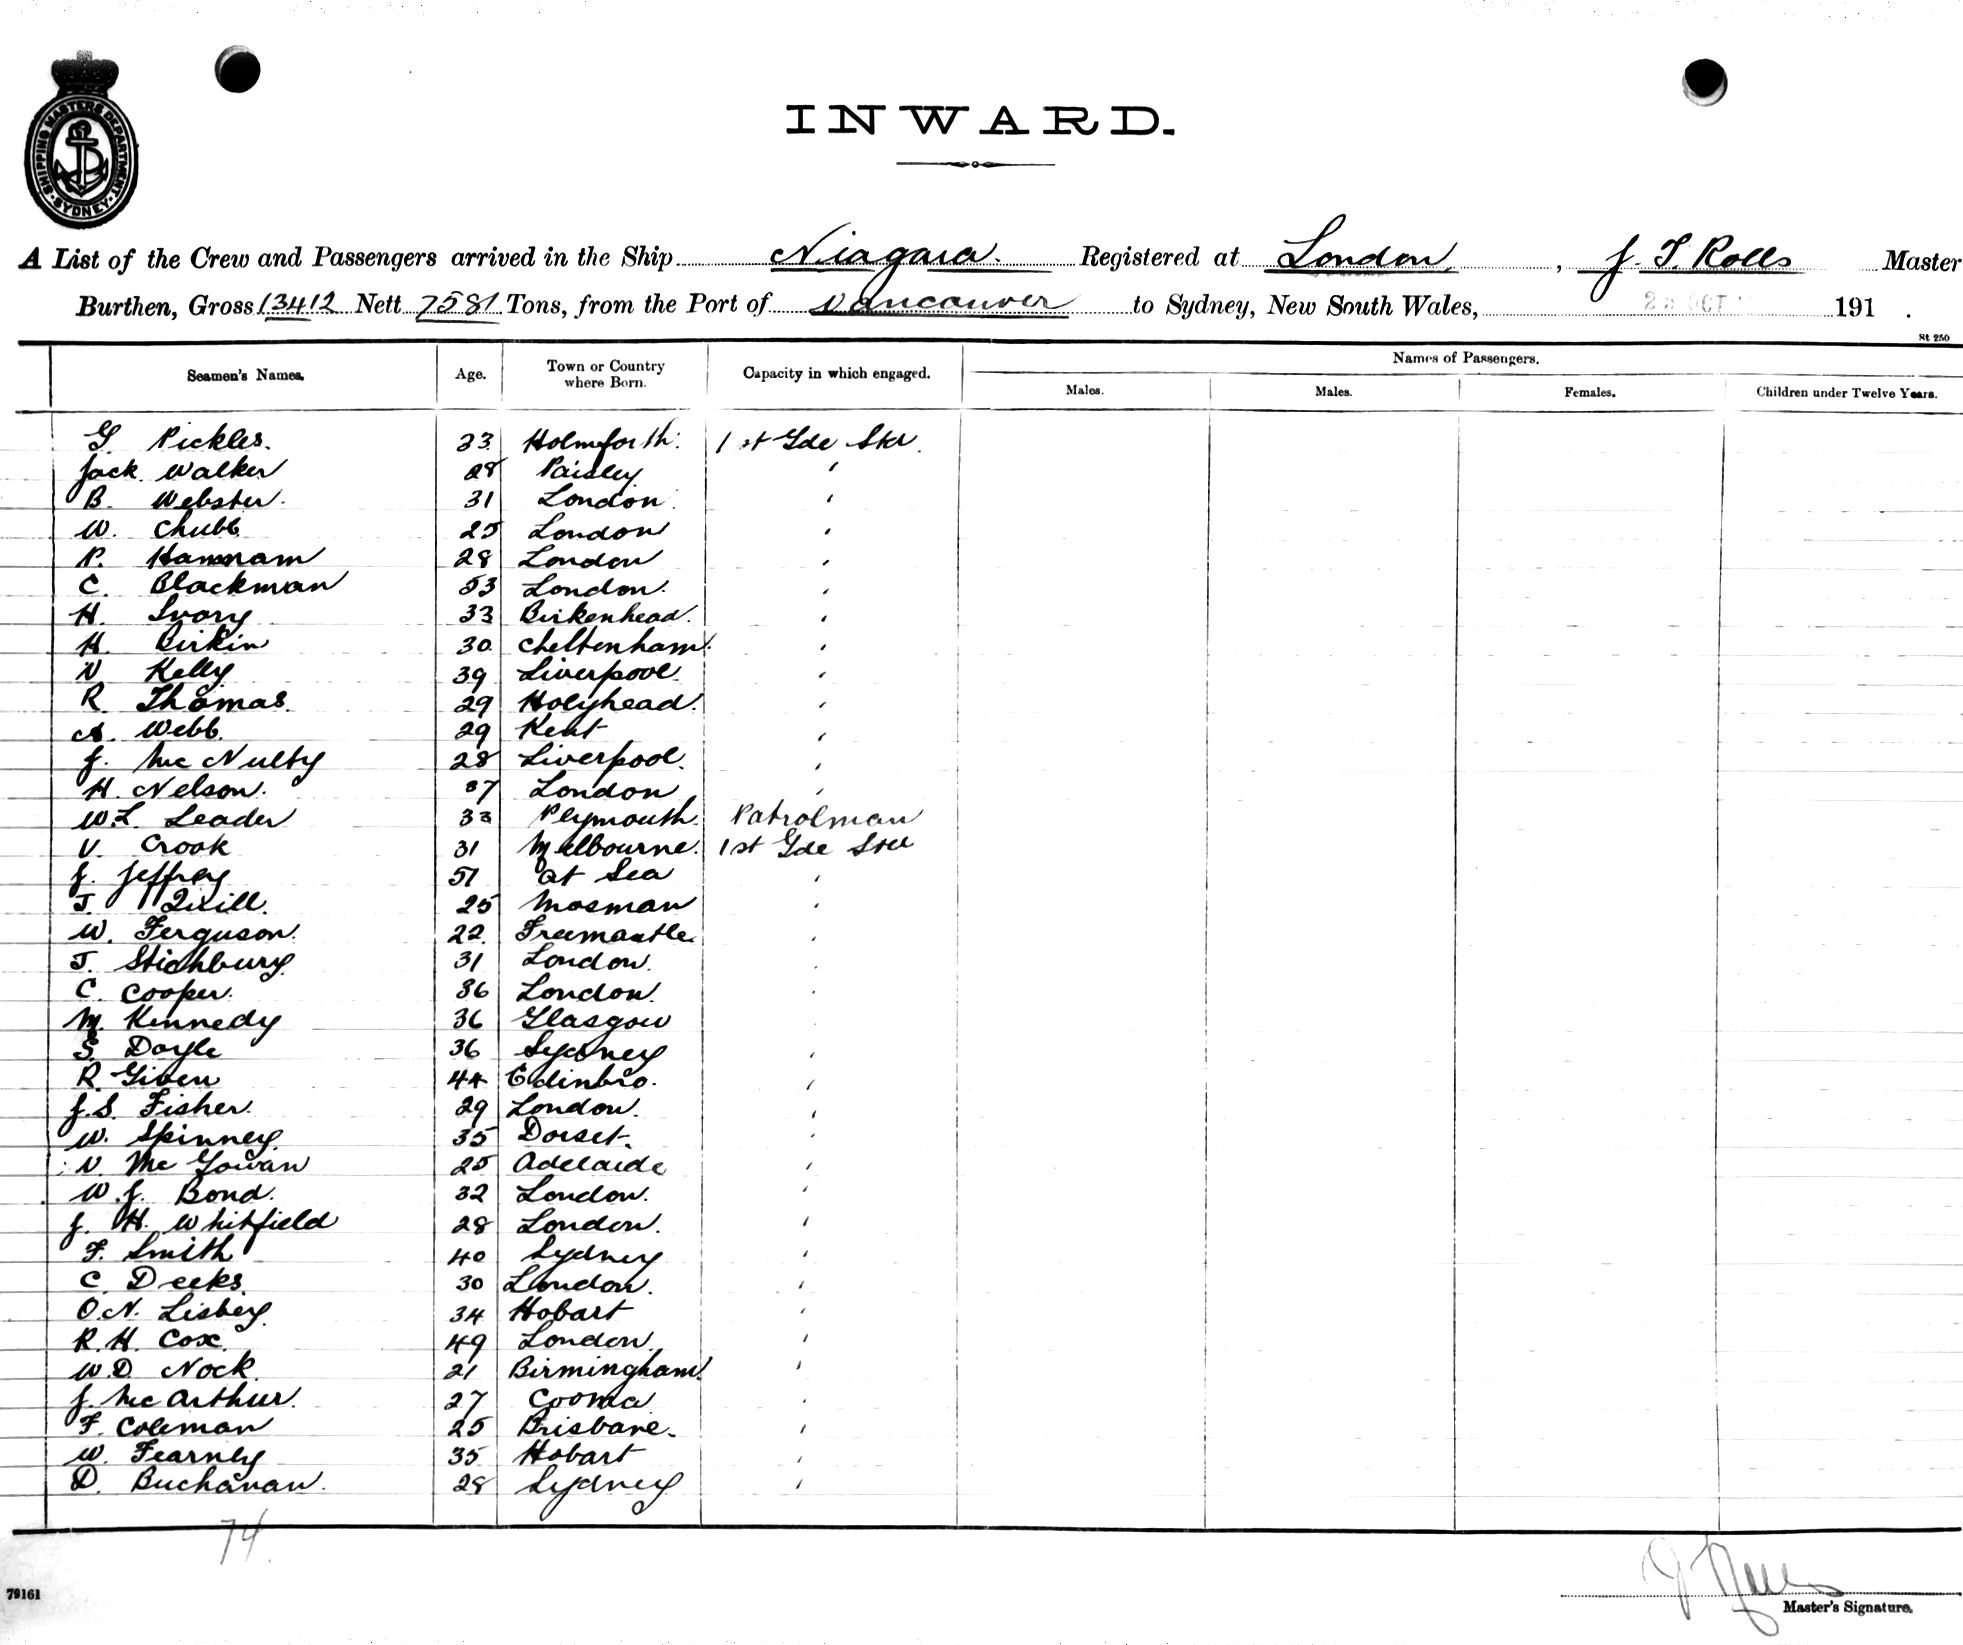 SHIPPING MASTERS DEPARTMENT SYDNEY
INWARD.
A List of the Crew and Passengers arrived in the Ship Niagara. Registered at London, J. T. Rolls Master
Burthen, Gross 13412 Nett 7581 Tons, from the Port of Vancouver to Sydney, New South Wales, 28 OCT 191 .
St 250
Seamen's Names. Age. Town or Country where Born. Capacity in which engaged. Names of Passengers.
Males. Males. Females. Children under Twelve Years.
G. Pickles. 23 Holmforth. 1st Gde Std.
Jack Walker 28 Paisley '
B. Webster. 31 London. '
W. Chubb 25 London '
P. Hannam 28 London '
C. Blackman 53 London. '
H. Ivory 33 Birkenhead. '
H. Birkin 30 Cheltenham. '
N Kelly 39 Liverpool. '
R. Thomas. 29 Holyhead. '
A. Webb. 29 Kent '
J. Mc Nulty 28 Liverpool. '
H. Nelson. 37 London '
W.L. Leader 33 Plymouth. Patrolman
V. Crook 31 Melbourne. 1st Gde Std
J. Jeffrey 51 At Sea '
J. Quill. 25 Mosman '
W. Ferguson. 22. Freemantle. '
J. Stichbury. 31 London. '
C. Cooper. 36 London. '
M. Kennedy 36 Glasgow
S. Doyle 36 Sydney '
R. Given 44 Edinbro. '
J.S. Fisher. 29 London. '
W. Spinney. 35 Dorset. '
N. Mc Gowan 25 Adelaide '
W.J. Bond. 32 London. '
J. H. Whitfield 28 London. '
F. Smith 40 Sydney '
C. Deeks. 30 London. '
O.N. Lisbey. 34 Hobart '
R.H. Cox. 49 London. '
W.D. Nock. 21 Birmingham. '
J. Mc Arthur. 27 Cooma '
F. Coleman 25 Brisbane. '
W. Fearney 35 Hobart '
D. Buchanan. 28 Sydney '
74.
79161
J Rolls
Master's Signature.